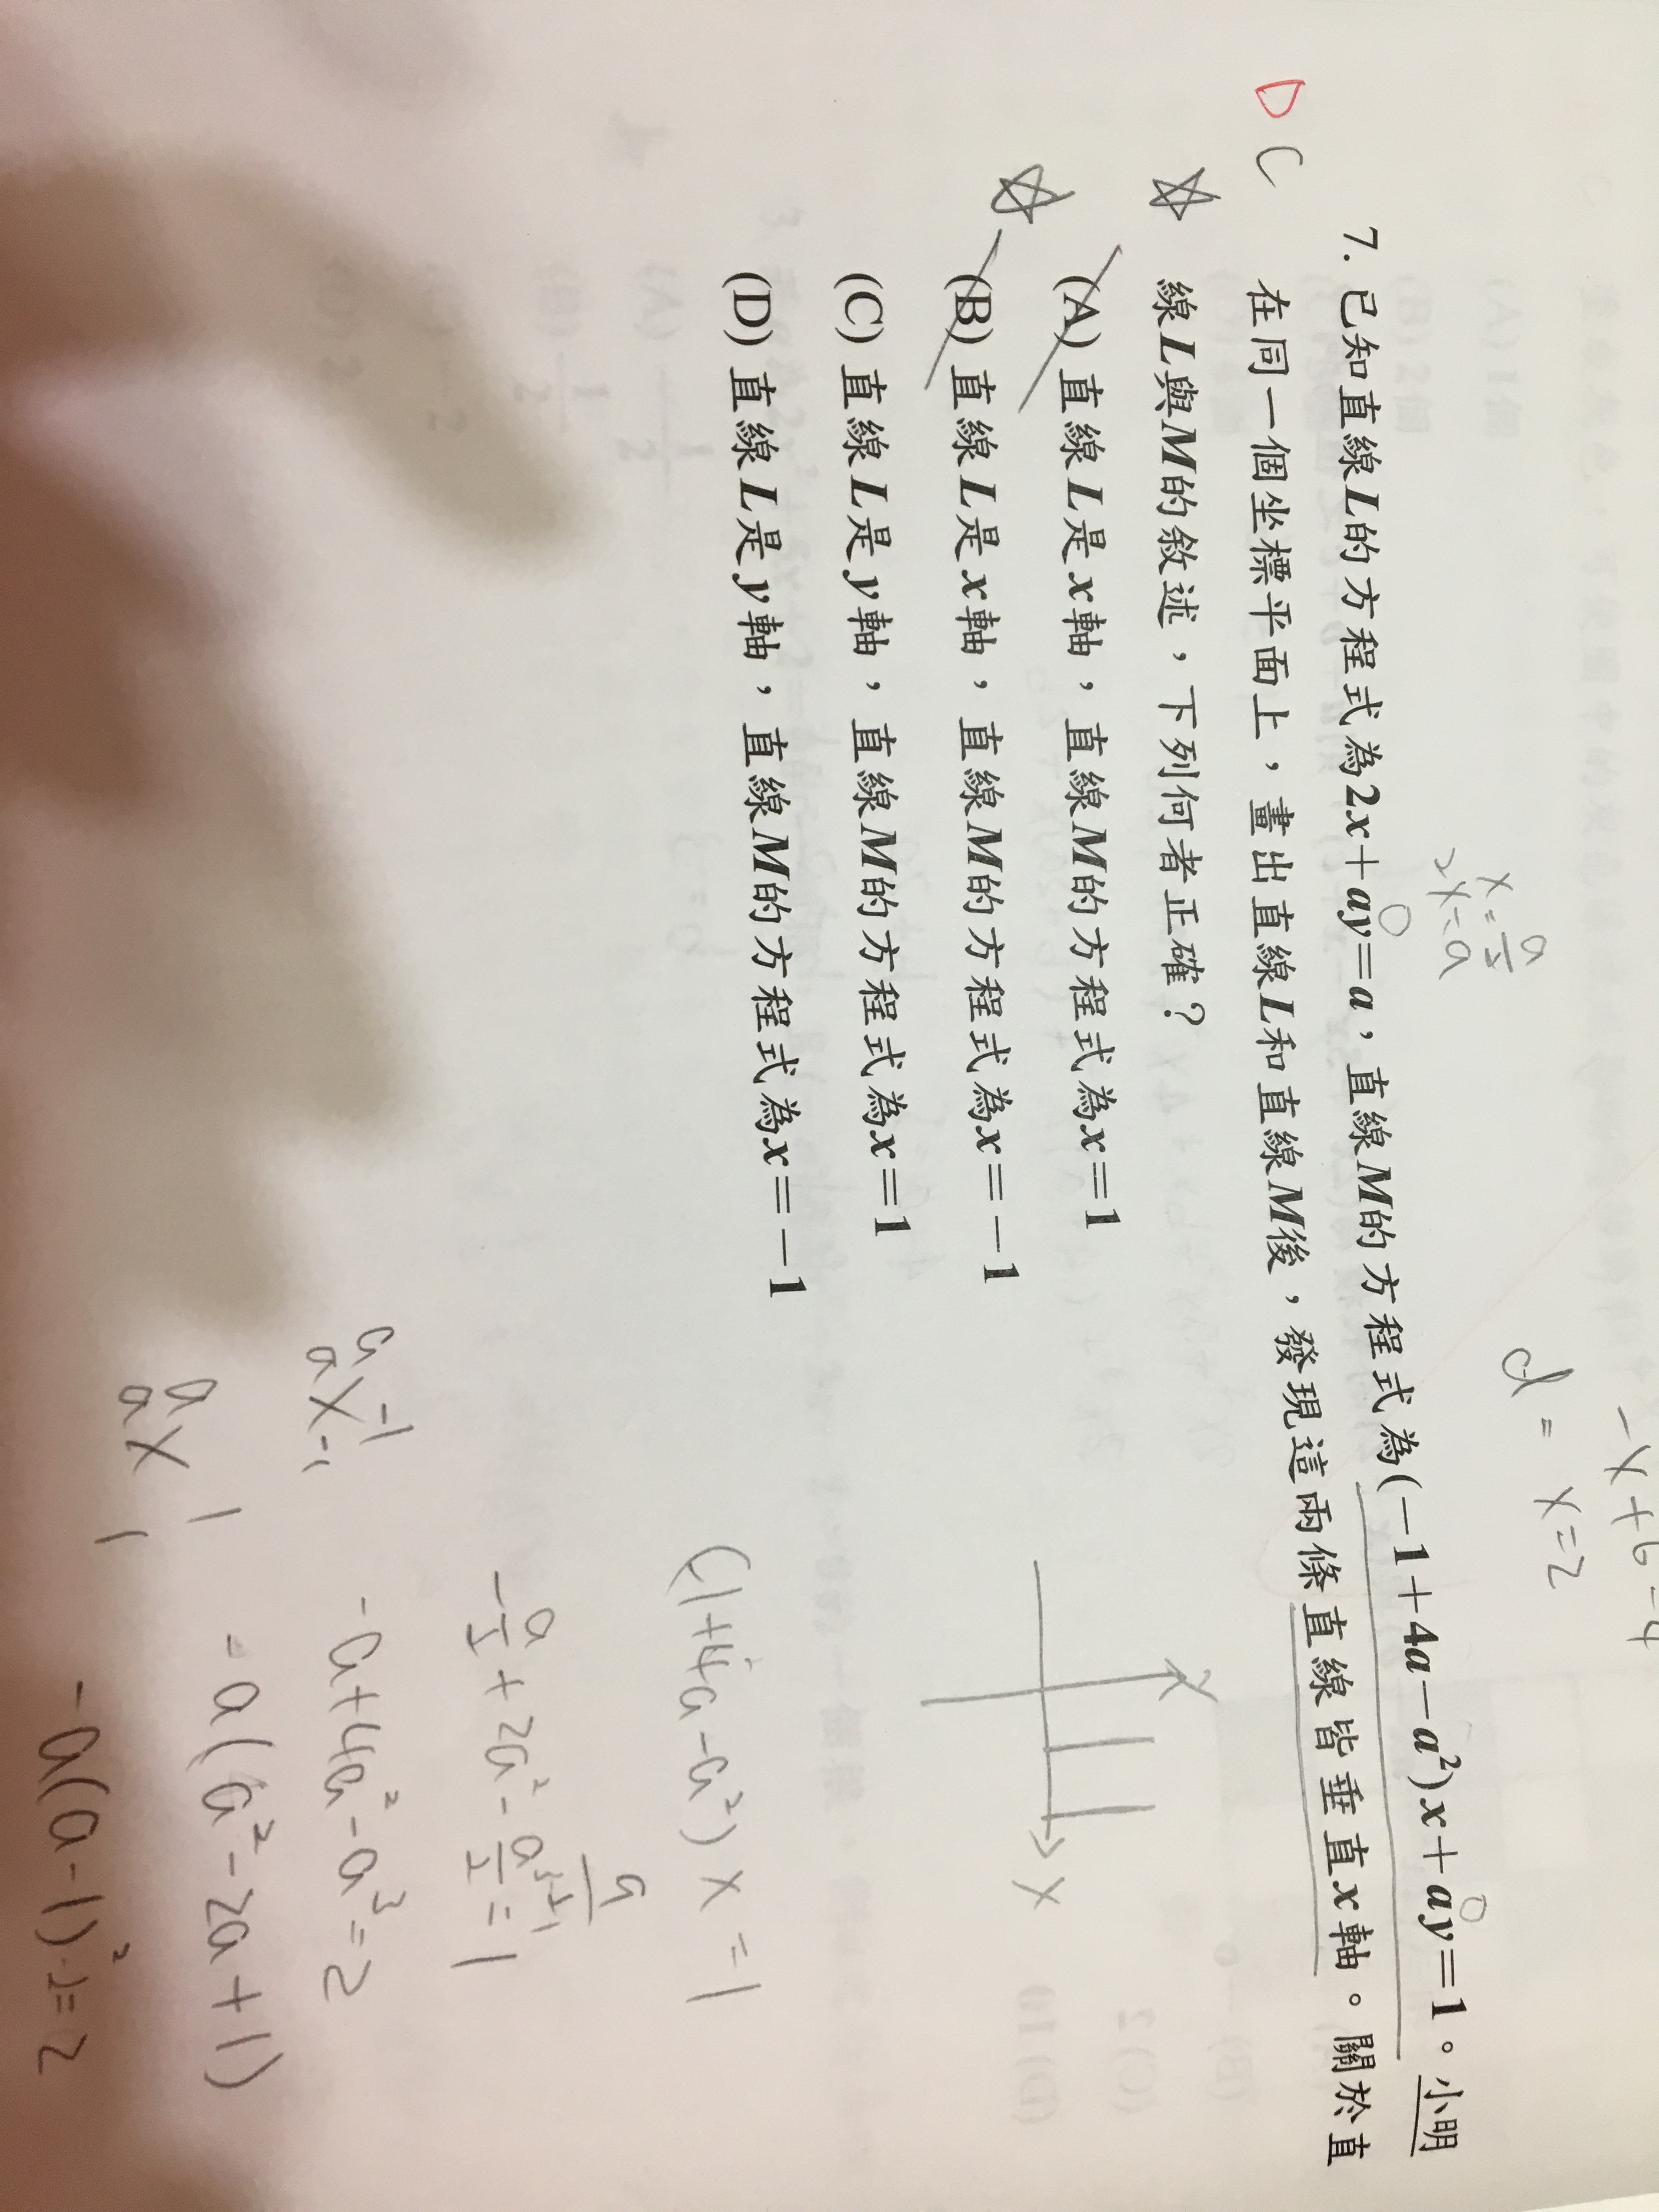 -x+6-4
d = x=2
x=a/2
2x=a
D C
7. 已知直線L的方程式為2x+ay=a，直線M的方程式為(-1+4a-a²)x+ay=1。小明
0 0
在同一個坐標平面上，畫出直線L和直線M後，發現這兩條直線皆垂直x軸。關於直
線L與M的敘述，下列何者正確？
(A) 直線L是x軸，直線M的方程式為x=1
(B) 直線L是x軸，直線M的方程式為x=-1
(C) 直線L是y軸，直線M的方程式為x=1
(D) 直線L是y軸，直線M的方程式為x=-1
y
x
(-1+4a-a²) x = 1
a/2
-a/2+2a²-a³/2=1
-a+4a²-a³=2
a -1
a -1
-a(a²-2a+1)
a 1
a 1